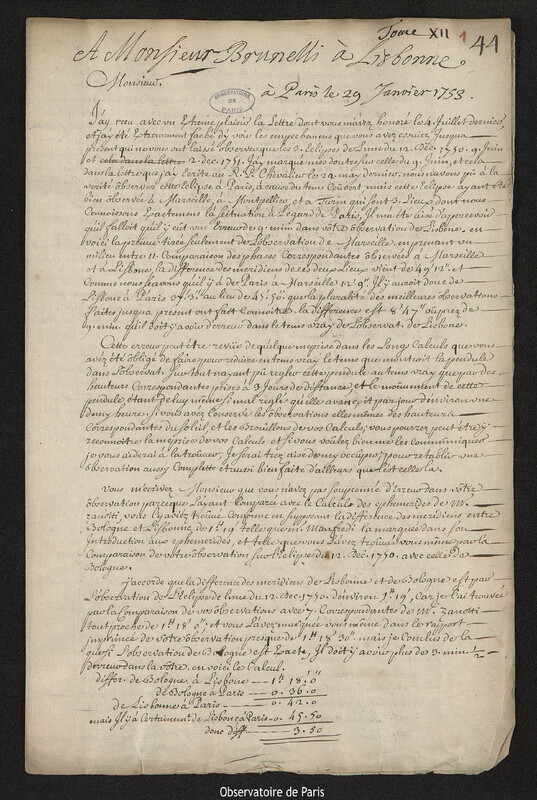 Tome XII 1 44
A Monsieur Brunelli à Lisbonne
Monsieur.
OBSERVATOIRE DE PARIS
à Paris le 29 Janvier 1753.
J'ay receu avec un Extreme plaisir la Lettre dont vous m'avez honoré le 4. Juillet dernier,
et j'ay été Extremement faché d'y voir les empechemens que vous avez essuiez Jusqua
present qui ne vous ont laissé observer que les 3. Eclipses de Lune du 12. Dec. 1750. 9. Juin
et cela dans la lettre 2. Dec. 1751. J'ay marqué mes doutes sur celle du 9. Juin, et cela
dans la lettre que j'ay Ecrite au R. P. Chevalier le 29 may dernier. nous n'avons pû à la
verité observer cette Eclipse à Paris, à cause du tems Couvert mais cette Eclipse ayant été
bien observée à Marseille, à Montpellier et à Turin qui sont 3. Lieux dont nous
Connoissons Exactement la situation à l'egard de Paris, Il m'a été aisé d'apercevoir
qu'il falloit qu'il y eût une Erreur de 9. min. dans votre observation de Lisbonne. en
voici la preuve tirée seulement de l'observation de Marseille. en prenant un
milieu entre 11. Comparaison des phases Correspondantes observées à Marseille
et à Lisbone, la difference des meridiens de ces deux Lieux vient de 49' 12". et
comme nous savons qu'il y a de Paris à Marseille 12' 9". Il y auroit donc de
Lisbone à Paris 37' 3". au lieu de 45' 50". que la pluralité des meilleures observations
faites jusqua present ont fait Connoitre. la difference est 8' 47" ou prez de
9. min. qu'il doit y avoir d'erreur dans le tems vray de l'observat. de Lisbone.
Cette erreur peut être venüe de quelque meprise dans les Longs Calculs que vous
avez été obligé de faire pour reduire en tems vray le tems que montroit la pendule
dans l'observat. sur tout n'ayant pû regler cette pendule au tems vray que par des
hauteurs Correspondantes prises à 3 Jours de distance, et le mouvement de cette
pendule étant de luy même si mal reglé qu'elle avançoit par jour d'environ une
demy heure. si vous avez Conservé les observations elles mêmes des hauteurs
Correspondantes du soleil, et les Brouillons de vos Calculs, vous pourrez peut être y
reconnoitre la meprise de vos Calculs et si vous voulez bien me les communiquer
je vous aiderai à la trouver, Je serai trez aise de m'y occuper, pour retablir une
observation aussy Complette et aussi bien faite d'ailleurs que l'est celle la.
vous m'ecrivez Monsieur que vous n'avez pas soupçonné d'Erreur dans votre
observation parceque l'ayant Comparée avec le Calcul des ephemerides de Mr.
Zanotti, vous l'y aviez trouvé Conforme en supposant la difference des meridiens entre
Bologne et Lisbonne de 1h 19' telle que Mr Manfredi l'a marquée dans son
Introduction aux ephemerides, et telle que vous l'avez trouvé vous même par la
Comparaison de votre observation sur l'eclipse du 12. Dec. 1750. avec celle de
Bologne.
j'accorde que la difference des meridiens de Lisbonne et de Bologne est par
l'observation de l'Eclipse de Lune du 12. Dec. 1750. d'environ 1h 19', car je l'ai trouvée
par la Comparaison de vos observations avec 7. Correspondantes de Mr Zanotti
tout proche de 1h 18' 0"; et vous l'avez marquée vous même dans le rapport
imprimé de votre observation presque de 1h 18' 30". mais je Conclus de la
que si l'observation de Bologne est Exacte, Il doit y avoir plus de 3. min. 1/2
d'erreur dans la votre. en voici le Calcul.
differ. de Bologne, à Lisbone — 1h 18' 0"
de Bologne à Paris — 0. 36. 0
de Lisbonne à Paris — 0. 42. 0
mais Il y a Certainemt. de Lisbone à Paris — 0. 45. 50
donc diff — 3. 50
Observatoire de Paris